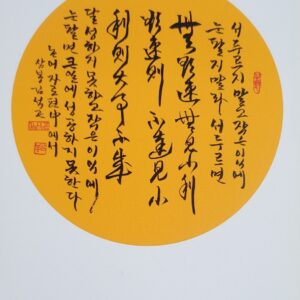 서두르지 말고 작은 이익에
눈 팔지 말라 서두르면
無欲速無見小利
欲速則不達見小
利則大事不成
달성하지 못하고 작은 이익에
눈 팔면 큰 일에 성공하지 못한다
논어 자로편 中에서